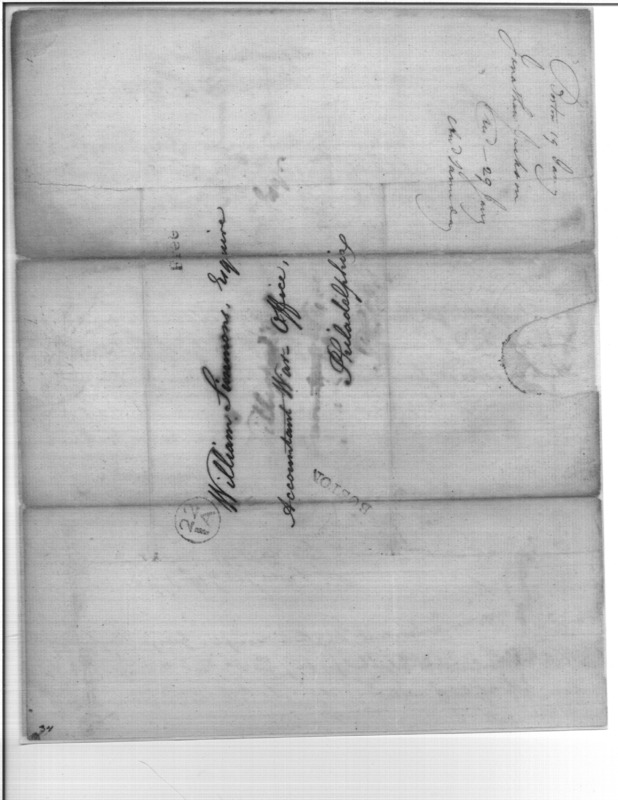 Boston 19 Jany
Jonathan Jackson
29 Jany
FREE
William Simmons, Esquire
Accountant War-Office,
Philadelphia
BOSTON
22
IA
34